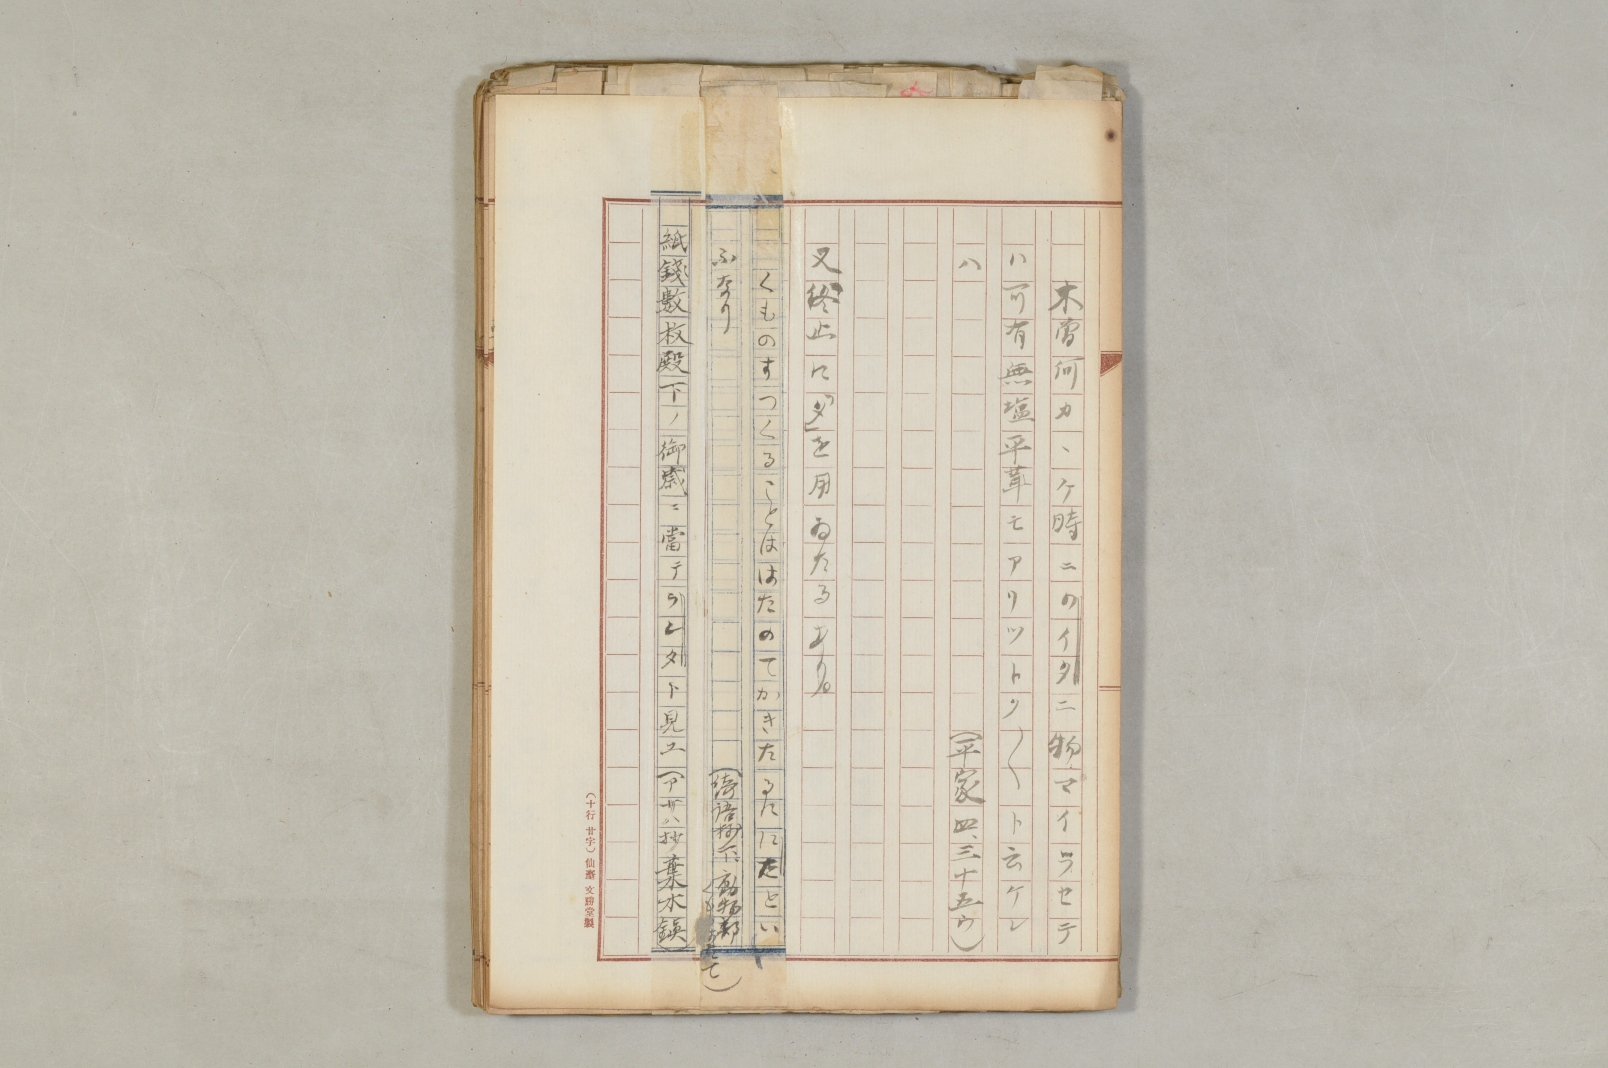 木曽何カヽケ時ニのイタニ物マイラセテ
ハ可有無塩平茸モアリツトク〳〵ト云ケレ
ハ
(平家四、三十五ウ)
又終止に「タ」を用ゐたるあり。
くものすつくることははたのてかきたるたにたとい
ふなり
(綺語抄下、動物部
紙錢數枚殿下ノ御歳ニ當テラレタト見エ(アサハ抄葉水鏡)
(十行 廿字) 仙臺 文勝堂製